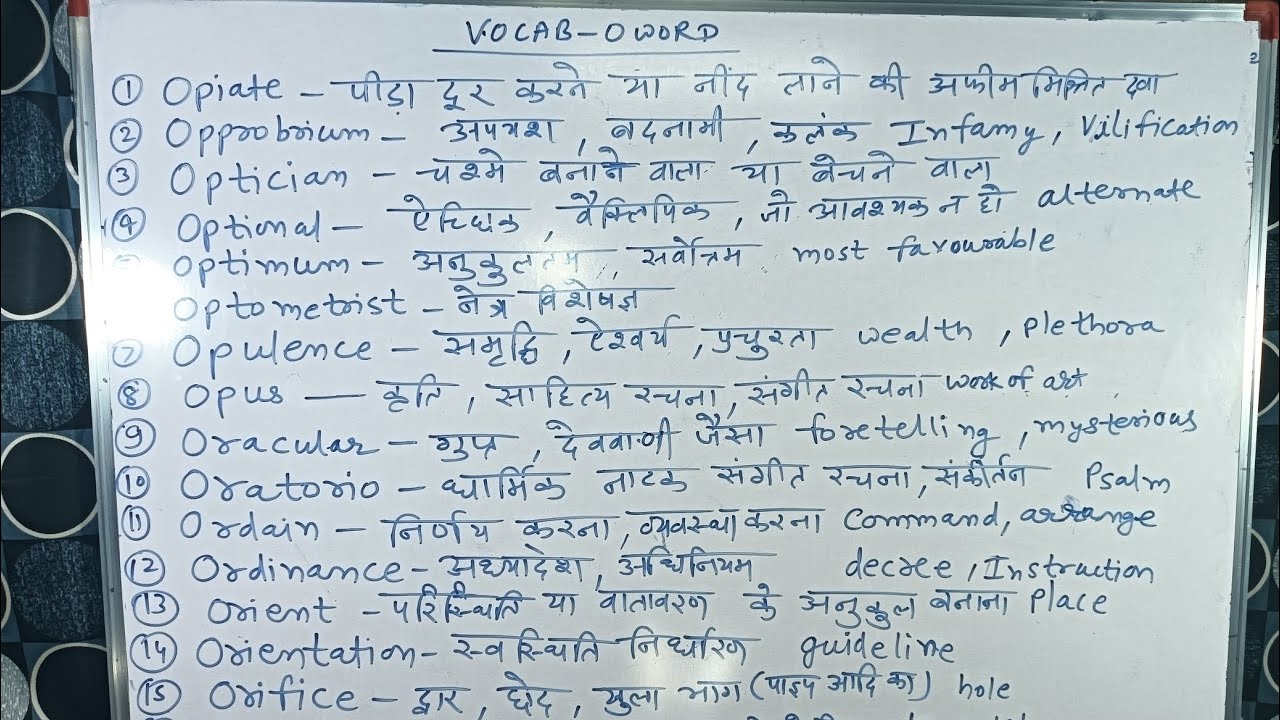 VOCAB-O WORD
2
① Opiate - पीड़ा दूर करने या नींद लाने की अफीम मिश्रित दवा
② Opprobrium - अपयश, बदनामी, कलंक Infamy, Vilification
③ Optician - चश्मे बनाने वाला या बेचने वाला
④ Optional - ऐच्छिक, वैकल्पिक, जो आवश्यक न हो alternate
Optimum - अनुकुलतम, सर्वोत्तम most favourable
Optometrist - नेत्र विशेषज्ञ
⑦ Opulence - समृद्धि, ऐश्वर्य, प्रचुरता wealth, Plethora
⑧ Opus - कृति, साहित्य रचना, संगीत रचना work of art
⑨ Oracular - गुप्त, देववाणी जैसा foretelling, mysterious
⑩ Oratorio - धार्मिक नाटक संगीत रचना, संकीर्तन Psalm
⑪ Ordain - निर्णय करना, व्यवस्था करना Command, arrange
⑫ Ordinance - अध्यादेश, अधिनियम decree, Instruction
⑬ Orient - परिस्थिति या वातावरण के अनुकुल बनाना Place
⑭ Orientation - स्व स्थिति निर्धारण guideline
⑮ Orifice - द्वार, छेद, खुला भाग (पाइप आदि का) hole